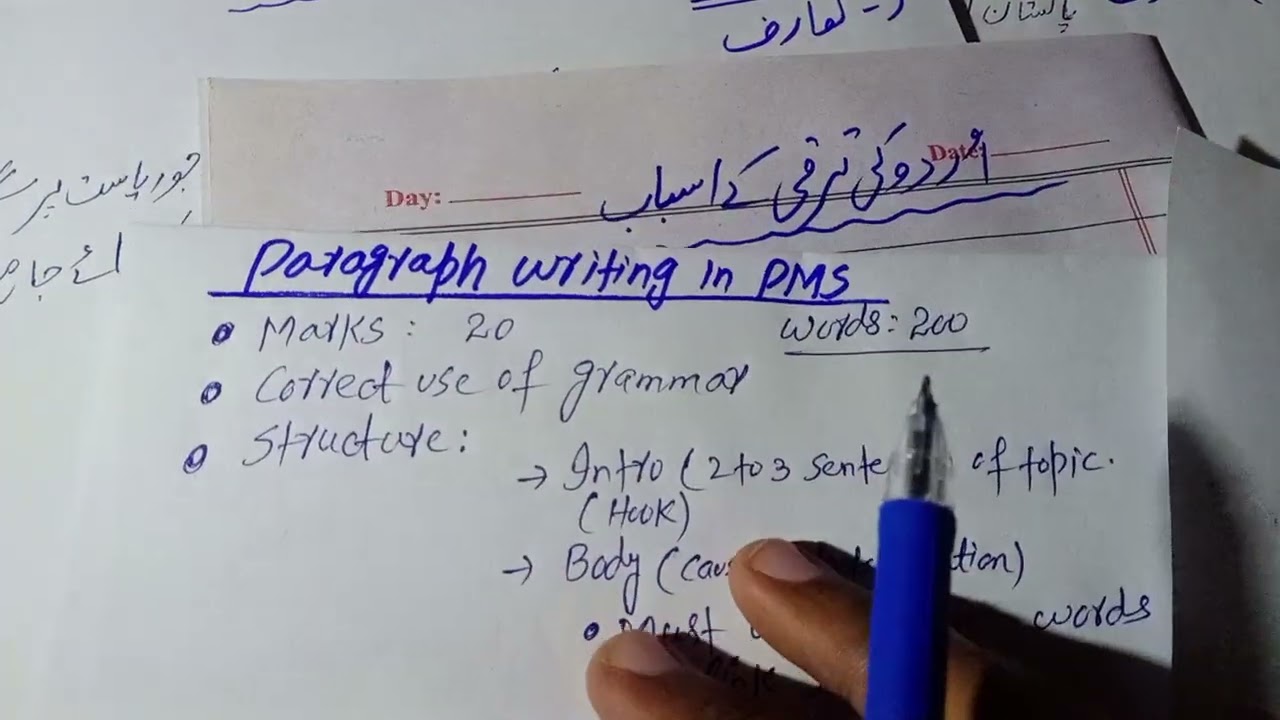 تعارف
پاستان
اردو کی ترقی کے اسباب
Day:
Date:
Paragraph writing in PMS
Marks: 20
words: 200
Correct use of grammar
Structure:
→ Intro (2 to 3 sente of topic.
(Hook)
→ Body (Caus tion)
Must words